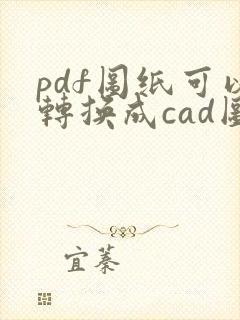 pdf圖纸可以
轉換成cad圖
宜蓁